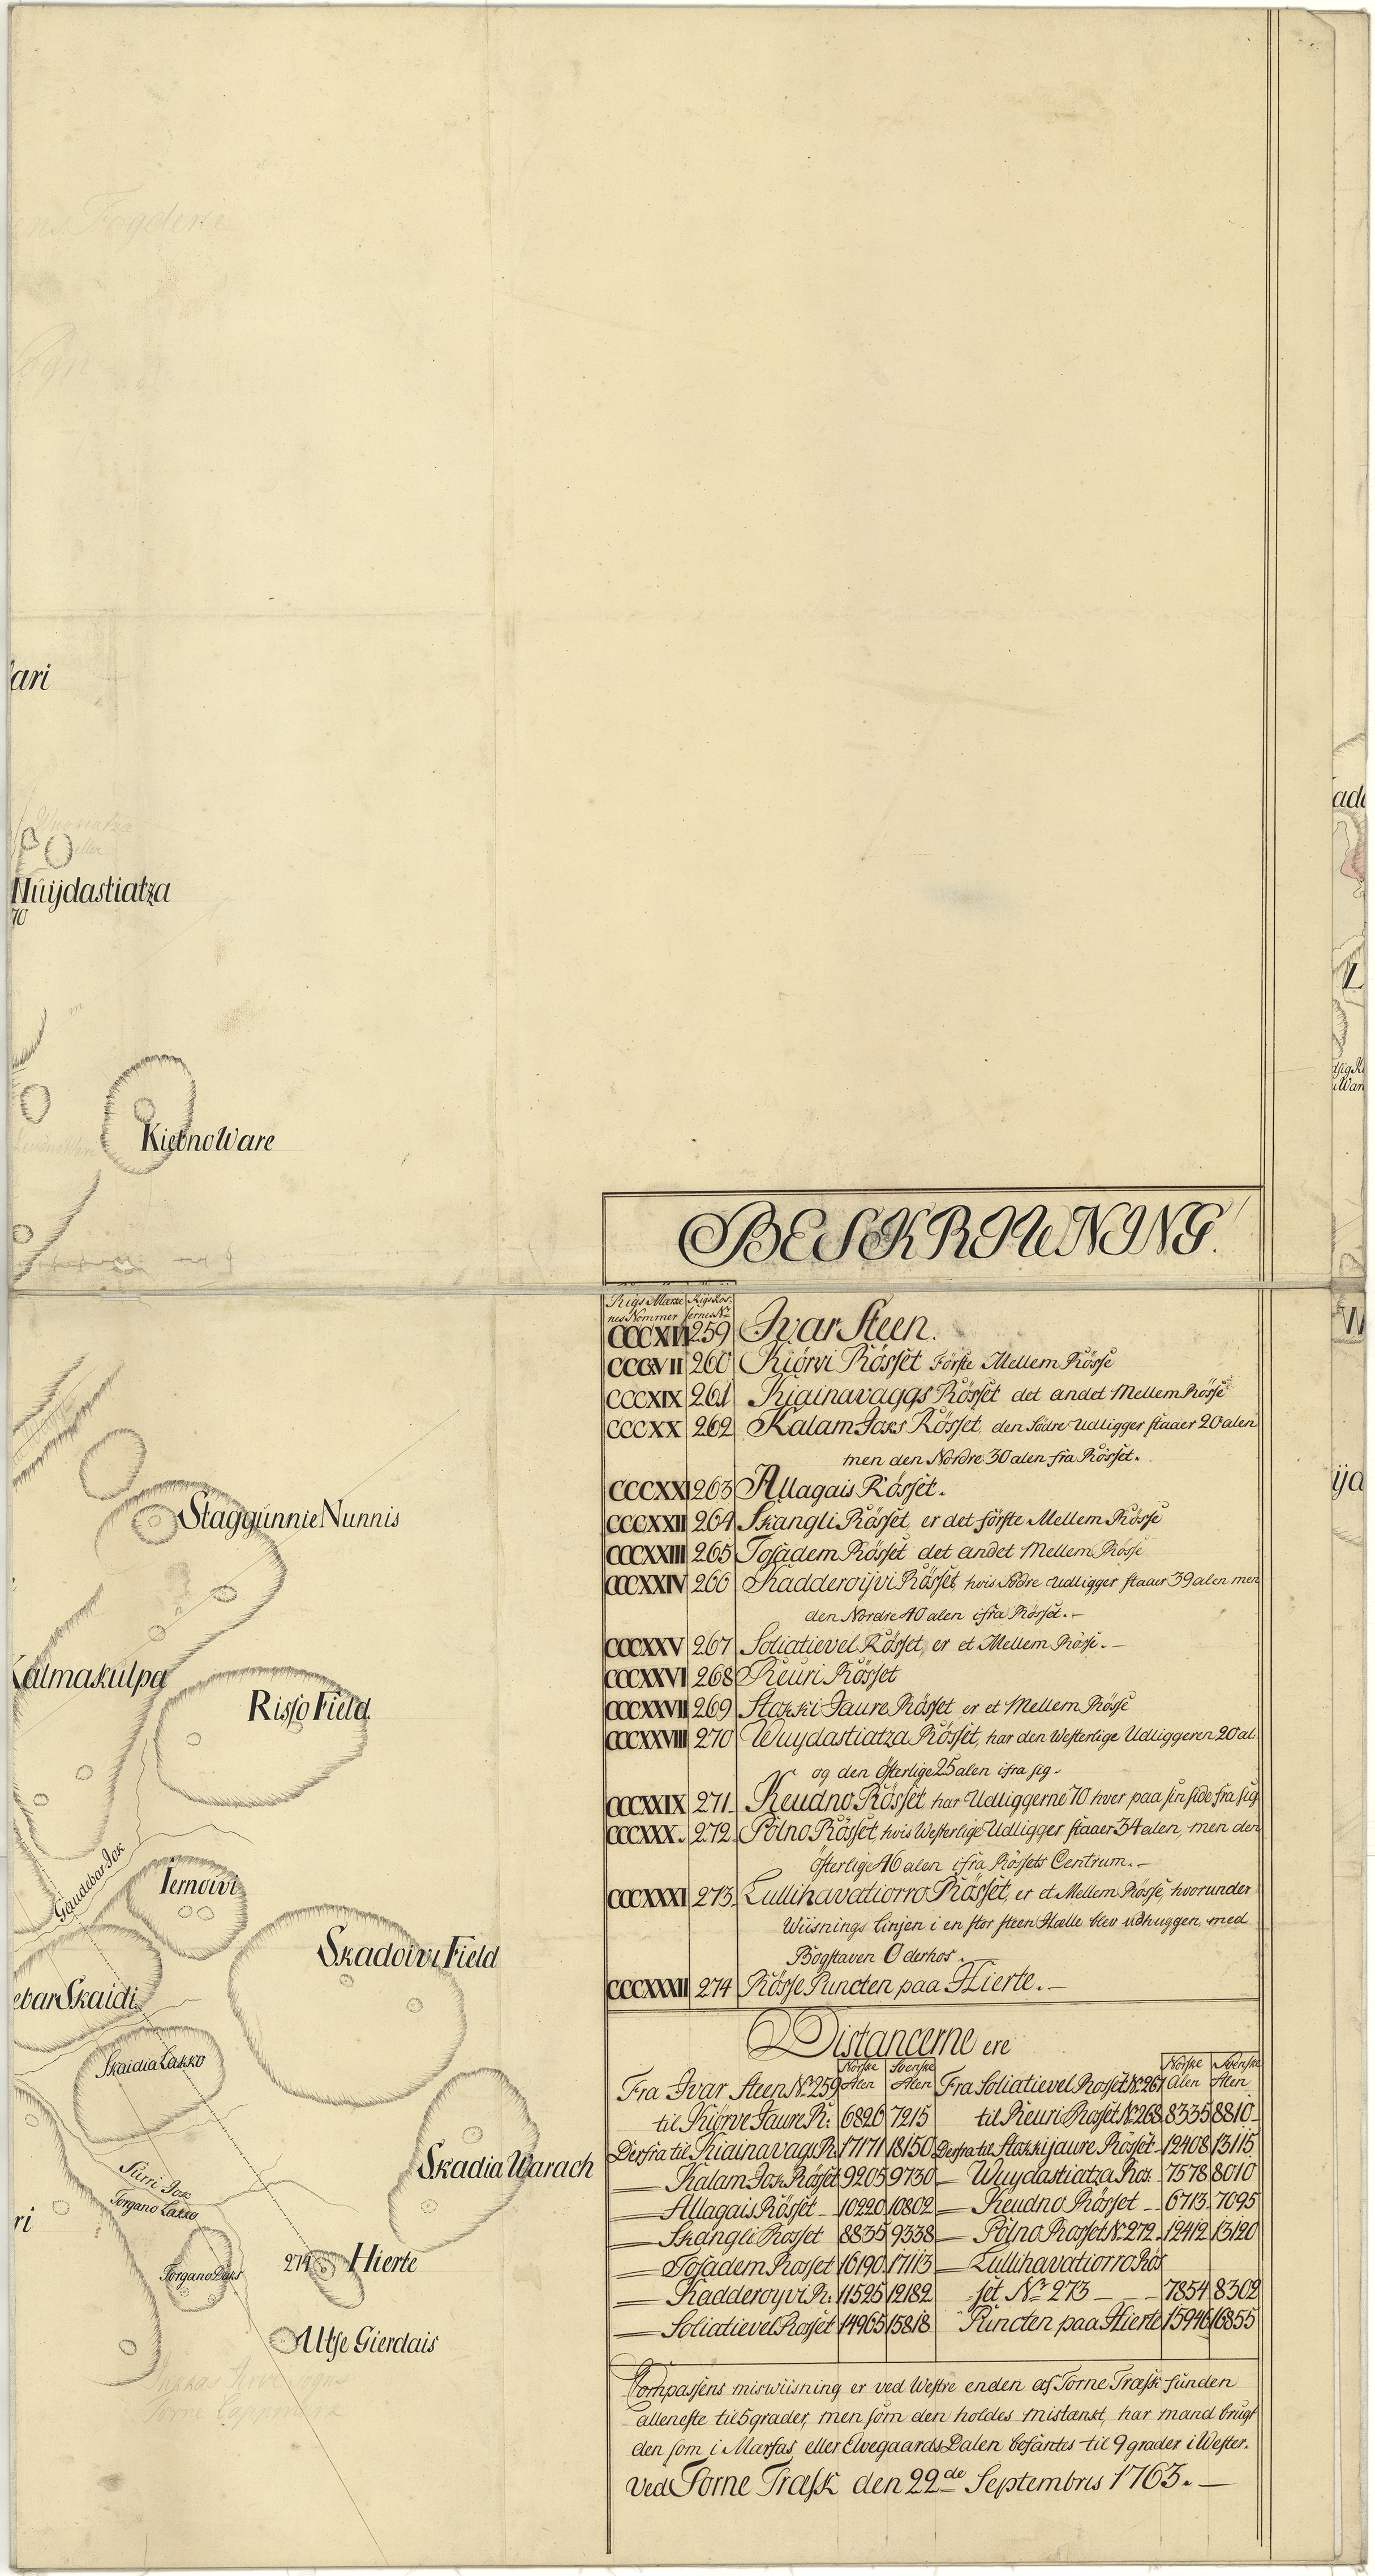 ari
Nuijdastiatza
70
KiebnoWare
StaggunnieNunnis
Kalmakulpa
Risso Field
Gieudebar Jok
Iernoivi
Skadoivi Field
ebarSkaidi
SkaidiaLakko
Skadia Warach
Surri Jok
Torgano Lakko
ri
274 Hierte
Altse Gierdais
BESKRIWNING.
Rigs Mærke nes Nommer
Rigs Rös: sernes No.
259 Ivar Steen.
CCCXVII 260 Kiörvi Rösset Förste Mellem Rösse
CCCXIX 261 Kiainavaggs Rösset det andet Mellem Rösse
CCCXX 262 Kalam Joks Rösset, den Södre Udligger staaer 20 alen
men den Nordre 30 alen fra Rösset.
CCCXXI 263 Allagais Rösset.
CCCXXII 264 Skangli Rösset, er det förste Mellem Rösse
CCCXXIII 265 Tosadem Rösset det andet Mellem Rösse
CCCXXIV 266 Kadderoijvi Rösset, hvis Södre Udligger staaer 39 alen men
den Nordre 40 alen ifra Rösset.-
CCCXXV 267 Soliatievel Rösset, er et Mellem Rösse.-
CCCXXVI 268 Reuri Rösset
CCCXXVII 269 Stokki Jaure Rösset er et Mellem Rösse
CCCXXVIII 270 Wuydastiatza Rösset, har den Westerlige Udliggeren 20 al:
og den Österlige 25 alen ifra sig.
CCCXXIX 271. Keudno Rösset har Udliggerne 70 hver paa sin side fra sig
CCCXXX. 272. Pólno Rösset hvis Westerlige Udligger staaer 34 alen, men den
Österlige 46 alen ifra Rössets Centrum.-
CCCXXXI 273. Lullihavatiorro Rösset, er et Mellem Rösse, hvorunder
Wiisnings linjen i en stor steen Hælle blev udhuggen, med
Bogstaven O derhos.
CCCXXXII 274 Rösse Puncten paa Hierte.-
Distancerne ere
Norske Alen Svenske Alen Norske Alen Svenske Alen
Fra Ivar Steen No. 259 Fra Soliatievel Rosset No. 267
til Kiörve Jaure R: 6826 7215 til Reuri Rosset No. 268 8335 8810
Derfra til Kiainavagi R. 17171 18150 Derfra til Stokkijaure Rösset 12408 13115
— Kalam Jok Rösset 9205 9730 — Wuydastiatza Ros: 7578 8010
— Allagais Rösset 10220 10802 — Keudno Rösset 6713 7095
— Skangli Rosset 8835 9338 — Pólno Rosset No. 272 12412 13120
— Tosadem Rosset 16190 17113 — Lullihavatiorro Rös
— Kadderoyvi R: 11525 12182 set No. 273 7854 8302
— Soliatievel Rosset 14965 15818 Puncten paa Hierte 15946 16855
Compassens miswiisning er ved Westre enden af Torne Træsk funden
alleneste til 5 grader, men som den holdes mistænkt, har mand brugt
den som i Marsas eller Elvegaards Dalen befantes til 9 grader i Wester.
ved Torne Træsk den 22de Septembris 1763.-